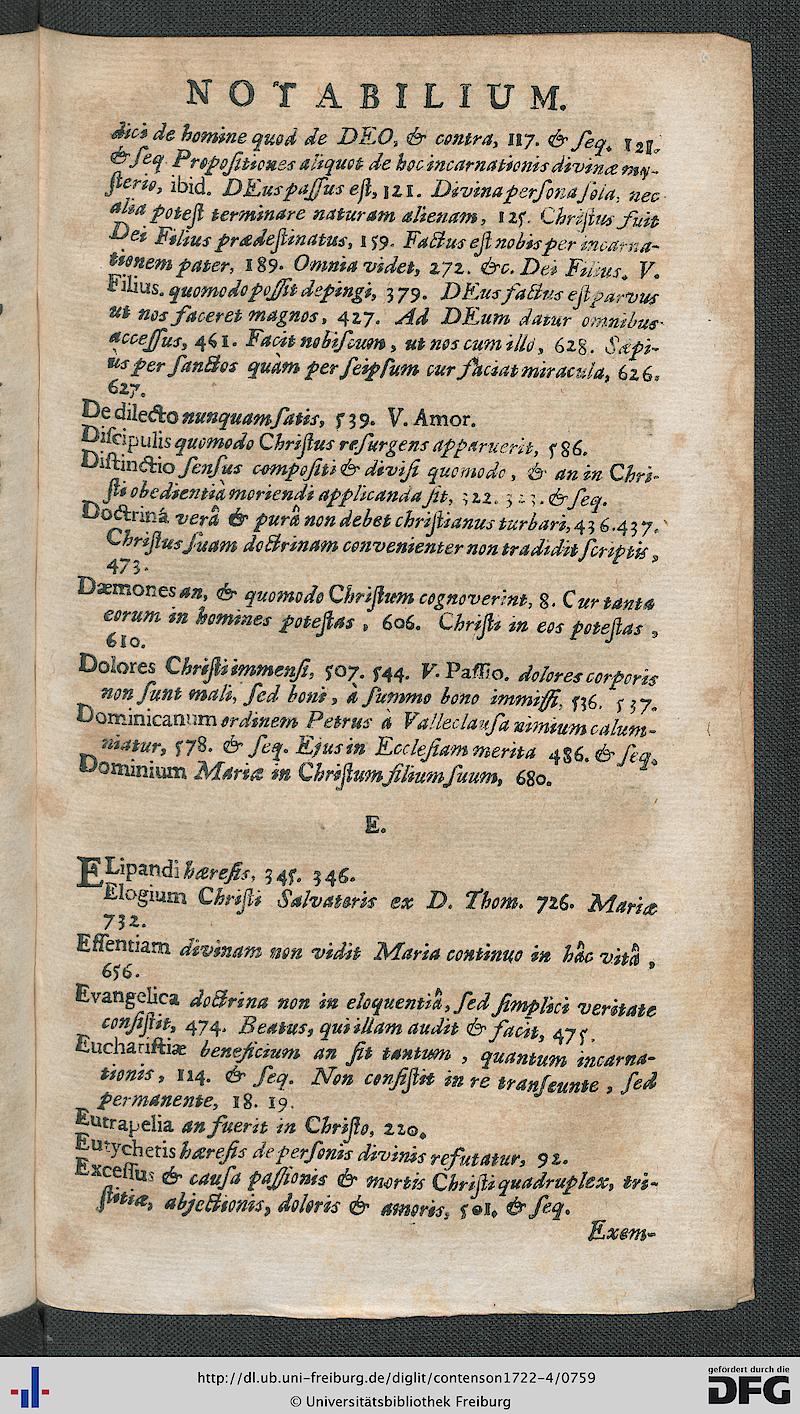 NOTABILIUM.
dici de homine quod de DEO, & contra, 117. & ſeq. 121.
& ſeq. Propoſitiones aliquot de hoc incarnationis divinæ my-
ſterio, ibid. DEus paſſus eſt, 121. Divina perſona ſola, nec
alia poteſt terminare naturam alienam, 125. Chriſtus fuit
Dei Filius prædeſtinatus, 159. Factus eſt nobis per incarna-
tionem pater, 189. Omnia videt, 272. &c. Dei Filius. V.
Filius. quomodo poſſit depingi, 379. DEus factus eſt parvus
ut nos faceret magnos, 427. Ad DEum datur omnibus
acceſſus, 461. Facit nobiſcum, ut nos cum illo, 628. Sæpi-
ùs per ſanctos quàm per ſeipſum cur faciat miracula, 626.
627.
De dilecto nunquam ſatis, 539. V. Amor.
Diſcipulis quomodo Chriſtus reſurgens apparuerit, 586.
Diſtinctio ſenſus compoſiti & diviſi quomodo, & an in Chri-
ſti obedientiâ moriendi applicanda ſit, 322. 323. & ſeq.
Doctrinâ verâ & purâ non debet chriſtianus turbari, 436. 437.
Chriſtus ſuam doctrinam convenienter non tradidit ſcriptis,
473.
Dæmones an, & quomodo Chriſtum cognoverint, 8. Cur tanta
eorum in homines poteſtas, 606. Chriſti in eos poteſtas,
610.
Dolores Chriſti immenſi, 507. 544. V. Paſſio. dolores corporis
non ſunt mali, ſed boni, à ſummo bono immiſſi, 536. 537.
Dominicanum ordinem Petrus à Valleclauſa nimium calum-
niatur, 578. & ſeq. Ejus in Eccleſiam merita 486. & ſeq.
Dominium Mariæ in Chriſtum filium ſuum, 680.
E.
ELipandi hæreſis, 345. 346.
Elogium Chriſti Salvatoris ex D. Thom. 726. Mariæ
732.
Eſſentiam divinam non vidit Maria continuo in hâc vitâ,
656.
Evangelica doctrina non in eloquentiâ, ſed ſimplici veritate
conſiſtit, 474. Beatus, qui illam audit & facit, 475.
Euchariſtiæ beneficium an ſit tantum, quantum incarna-
tionis, 114. & ſeq. Non conſiſtit in re tranſeunte, ſed
permanente, 18. 19.
Eutrapelia an fuerit in Chriſto, 220.
Eutychetis hæreſis de perſonis divinis refutatur, 92.
Exceſſus & cauſa paſſionis & mortis Chriſti quadruplex, tri-
ſtitiæ, abjectionis, doloris & amoris, 501. & ſeq.
Exem-
http://dl.ub.uni-freiburg.de/diglit/contenson1722-4/0759
© Universitätsbibliothek Freiburg
gefördert durch die
DFG